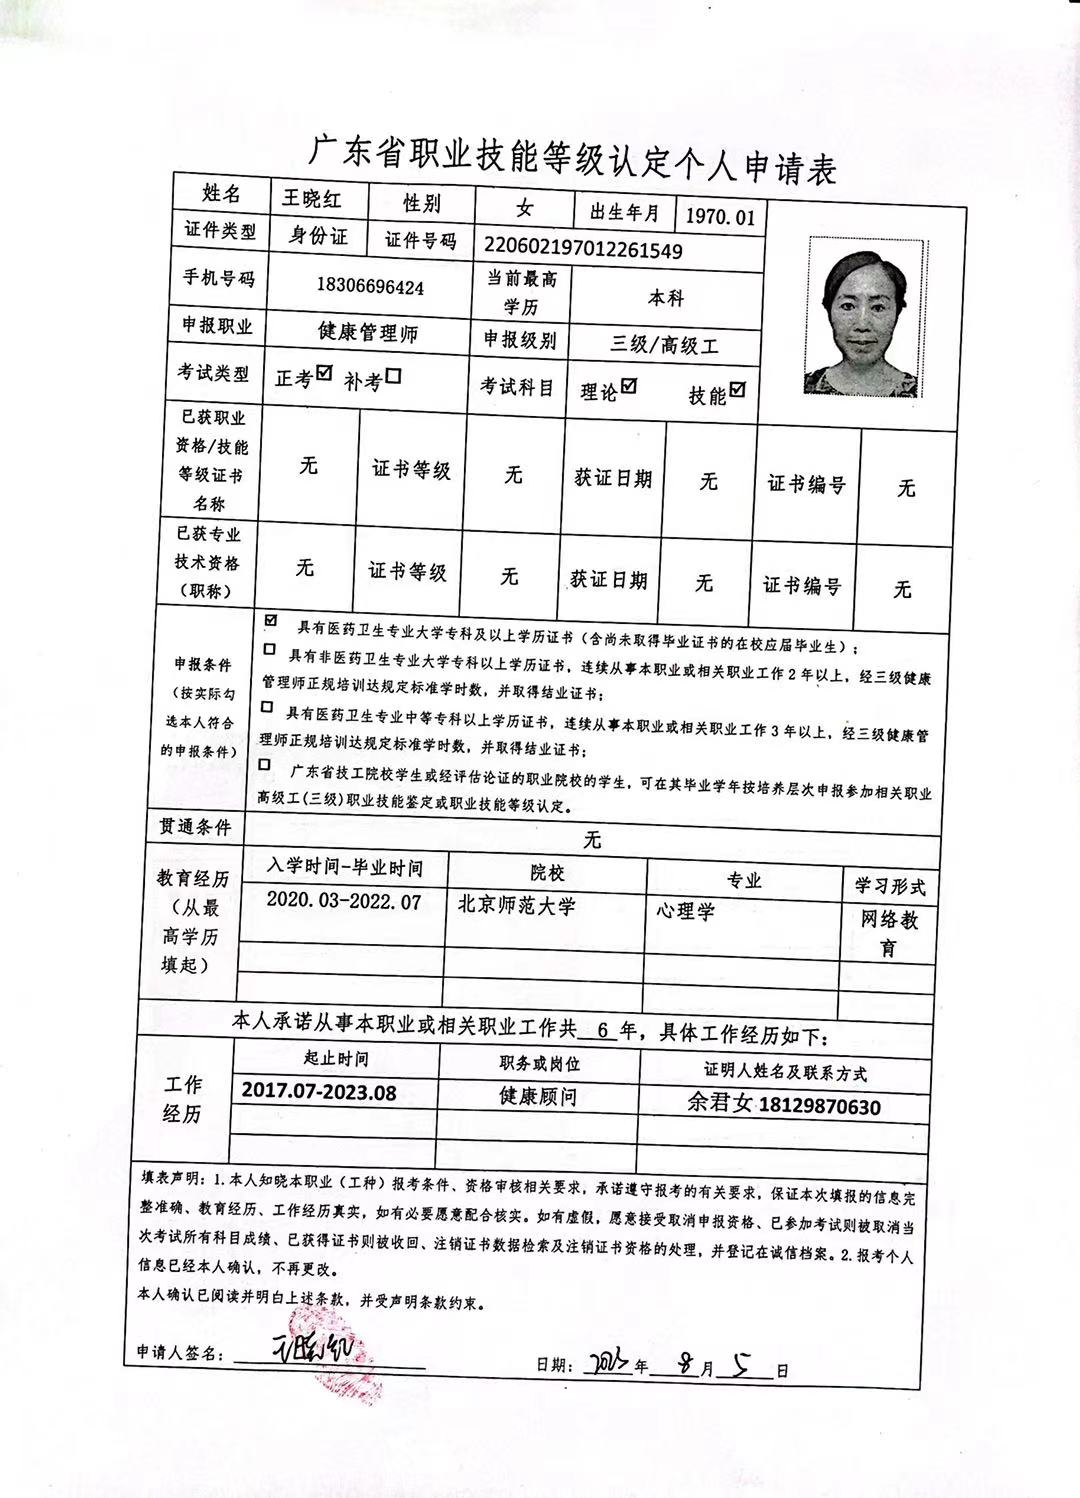 广东省职业技能等级认定个人申请表
姓名 王晓红 性别 女 出生年月 1970.01
证件类型 身份证 证件号码 220602197012261549
手机号码 18306696424 当前最高学历 本科
申报职业 健康管理师 申报级别 三级/高级工
考试类型 正考☑ 补考☐ 考试科目 理论☑ 技能☑
已获职业资格/技能等级证书名称 无 证书等级 无 获证日期 无 证书编号 无
已获专业技术资格（职称） 无 证书等级 无 获证日期 无 证书编号 无
申报条件（按实际勾选本人符合的申报条件）
☑ 具有医药卫生专业大学专科及以上学历证书（含尚未取得毕业证书的在校应届毕业生）；
☐ 具有非医药卫生专业大学专科以上学历证书，连续从事本职业或相关职业工作2年以上，经三级健康
管理师正规培训达规定标准学时数，并取得结业证书；
☐ 具有医药卫生专业中等专科以上学历证书，连续从事本职业或相关职业工作3年以上，经三级健康管
理师正规培训达规定标准学时数，并取得结业证书；
☐ 广东省技工院校学生或经评估论证的职业院校的学生，可在其毕业学年按培养层次申报参加相关职业
高级工(三级)职业技能鉴定或职业技能等级认定。
贯通条件 无
教育经历（从最高学历填起） 入学时间-毕业时间 院校 专业 学习形式
2020.03-2022.07 北京师范大学 心理学 网络教育
本人承诺从事本职业或相关职业工作共 6 年，具体工作经历如下：
工作经历 起止时间 职务或岗位 证明人姓名及联系方式
2017.07-2023.08 健康顾问 余君女 18129870630
填表声明：1.本人知晓本职业（工种）报考条件、资格审核相关要求，承诺遵守报考的有关要求，保证本次填报的信息完
整准确、教育经历、工作经历真实，如有必要愿意配合核实。如有虚假，愿意接受取消申报资格、已参加考试则被取消当
次考试所有科目成绩、已获得证书则被收回、注销证书数据检索及注销证书资格的处理，并登记在诚信档案。2.报考个人
信息已经本人确认，不再更改。
本人确认已阅读并明白上述条款，并受声明条款约束。
申请人签名： 王晓红 日期： 2023 年 8 月 5 日